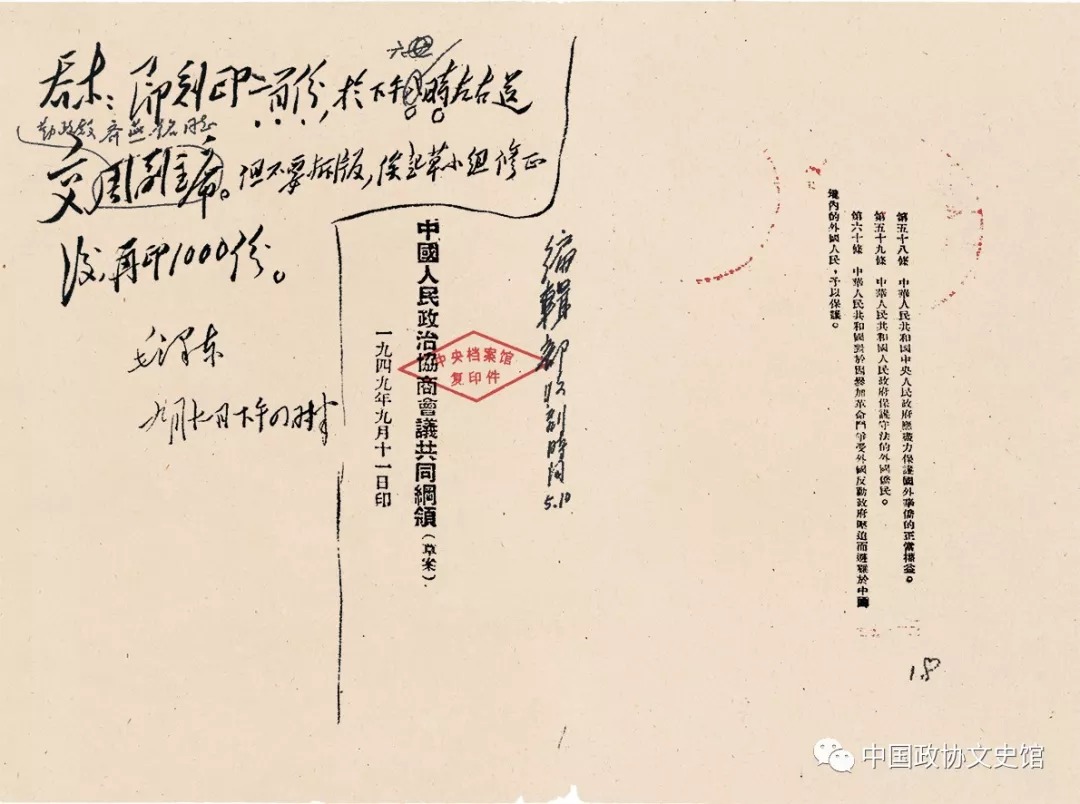 乔木：即刻印二百份，於下午六時左右送
勤政殿 齐燕铭同志
交周副主席。但不要拆版，俟起草小组修正
后，再印1000份。
毛泽东
九月十一日下午四时半
第五十八條　中華人民共和國中央人民政府應盡力保護國外華僑的正當權益。
第五十九條　中華人民共和國人民政府保護守法的外國僑民。
第六十條　中華人民共和國對於因參加革命鬥爭受外國反動政府壓迫而避難於中國
境內的外國人民，予以保護。
編輯部收到時间 5.10
中國人民政治協商會議共同綱領（草案）
一九四九年九月十一日印
中央档案馆
复印件
18
中国政协文史馆